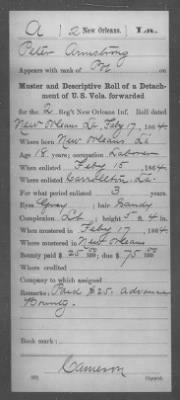 A | 2 | New Orleans. | La.
Peter Armstrong
Appears with rank of Pvt
Muster and Descriptive Roll of a Detach-
ment of U. S. Vols. forwarded
for the 2 Reg't New Orleans Inf. Roll dated
New Orleans La Feby 17, 1864
Where born New Orleans La
Age 18 years; occupation Laborer
When enlisted Feby 15, 1864
Where enlisted Carrollton La
For what period enlisted 3 years.
Eyes Gray; hair Sandy
Complexion; height 5 ft. 4 in.
When mustered in Feby 17, 1864
Where mustered in New Orleans
Bounty paid $25 00/100; due $75 00/100
Where credited
Company to which assigned
Remarks: Paid $25. advance
Bounty.
Book mark:
Cameron
Copyist.